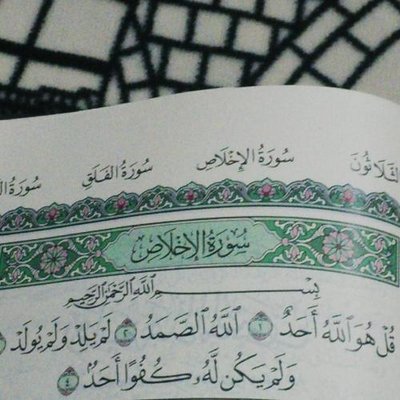 ٱلثَّلَاثُونَ سُورَةُ الإِخْلَاصِ سُورَةُ الفَلَقِ سُورَةُ
سُورَةُ الإِخْلَاصِ
بِسْمِ ٱللَّهِ ٱلرَّحْمَٰنِ ٱلرَّحِيمِ
قُلْ هُوَ ٱللَّهُ أَحَدٌ ١ ٱللَّهُ ٱلصَّمَدُ ٢ لَمْ يَلِدْ وَلَمْ يُولَدْ
وَلَمْ يَكُن لَّهُۥ كُفُوًا أَحَدٌۢ ٤